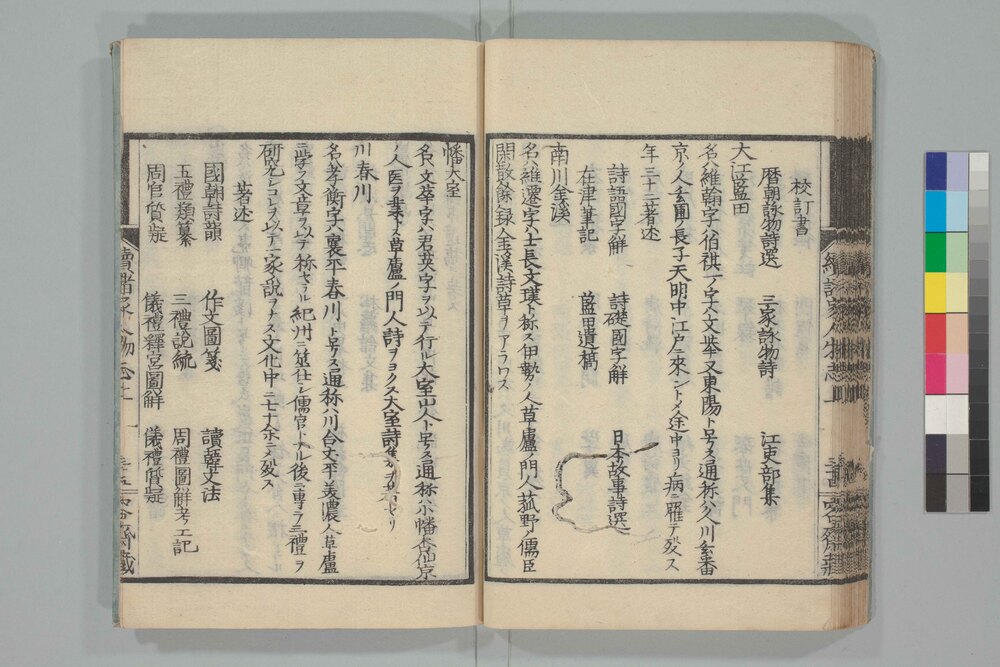 校訂書
暦朝詠物詩選　三家詠物詩　江吏部集
大江藍田
名ハ維翰字ハ伯祺一ノ字ハ文華又東陽ト号ス通称ハ久川玄番
京ノ人玄圃ノ長子天明中江戸ニ來ントメ途中ヨリ病ニ罹テ歿ス
年三十二著述
詩語國字解　詩礎國字解　日本故事詩選
在津筆記　藍田遺稿
南川金溪
名ハ維遷字ハ士長文璞ト称ス伊勢ノ人草盧ノ門人菰野ノ儒臣
閑散餘録金溪詩草ヲアラワス
幡大室
名ハ文華字ハ君英字ヲ以テ行ル大室山人ト号ス通称ハ小幡
ノ人医ヲ業トス草盧ノ門人詩ヲヨクス大室詩集
川春川
名ハ孝衡字ハ襄平春川ト号ス通称ハ川合文平美濃ノ人草盧
ニ学フ文章ヲ以テ称セラル紀州ニ筮仕シ儒官トナル後ニ専ラ三禮ヲ
研究シコレヲ以テ一家ノ説ヲナス文化中ニ七十余ニテ歿ス
著述
國朝詩韻　作文圖箋　讀韓文法
五禮類纂　三禮説統　周禮圖解考工記
周官質疑　儀禮釋宮圖解　儀禮質疑
續諸家人物志上